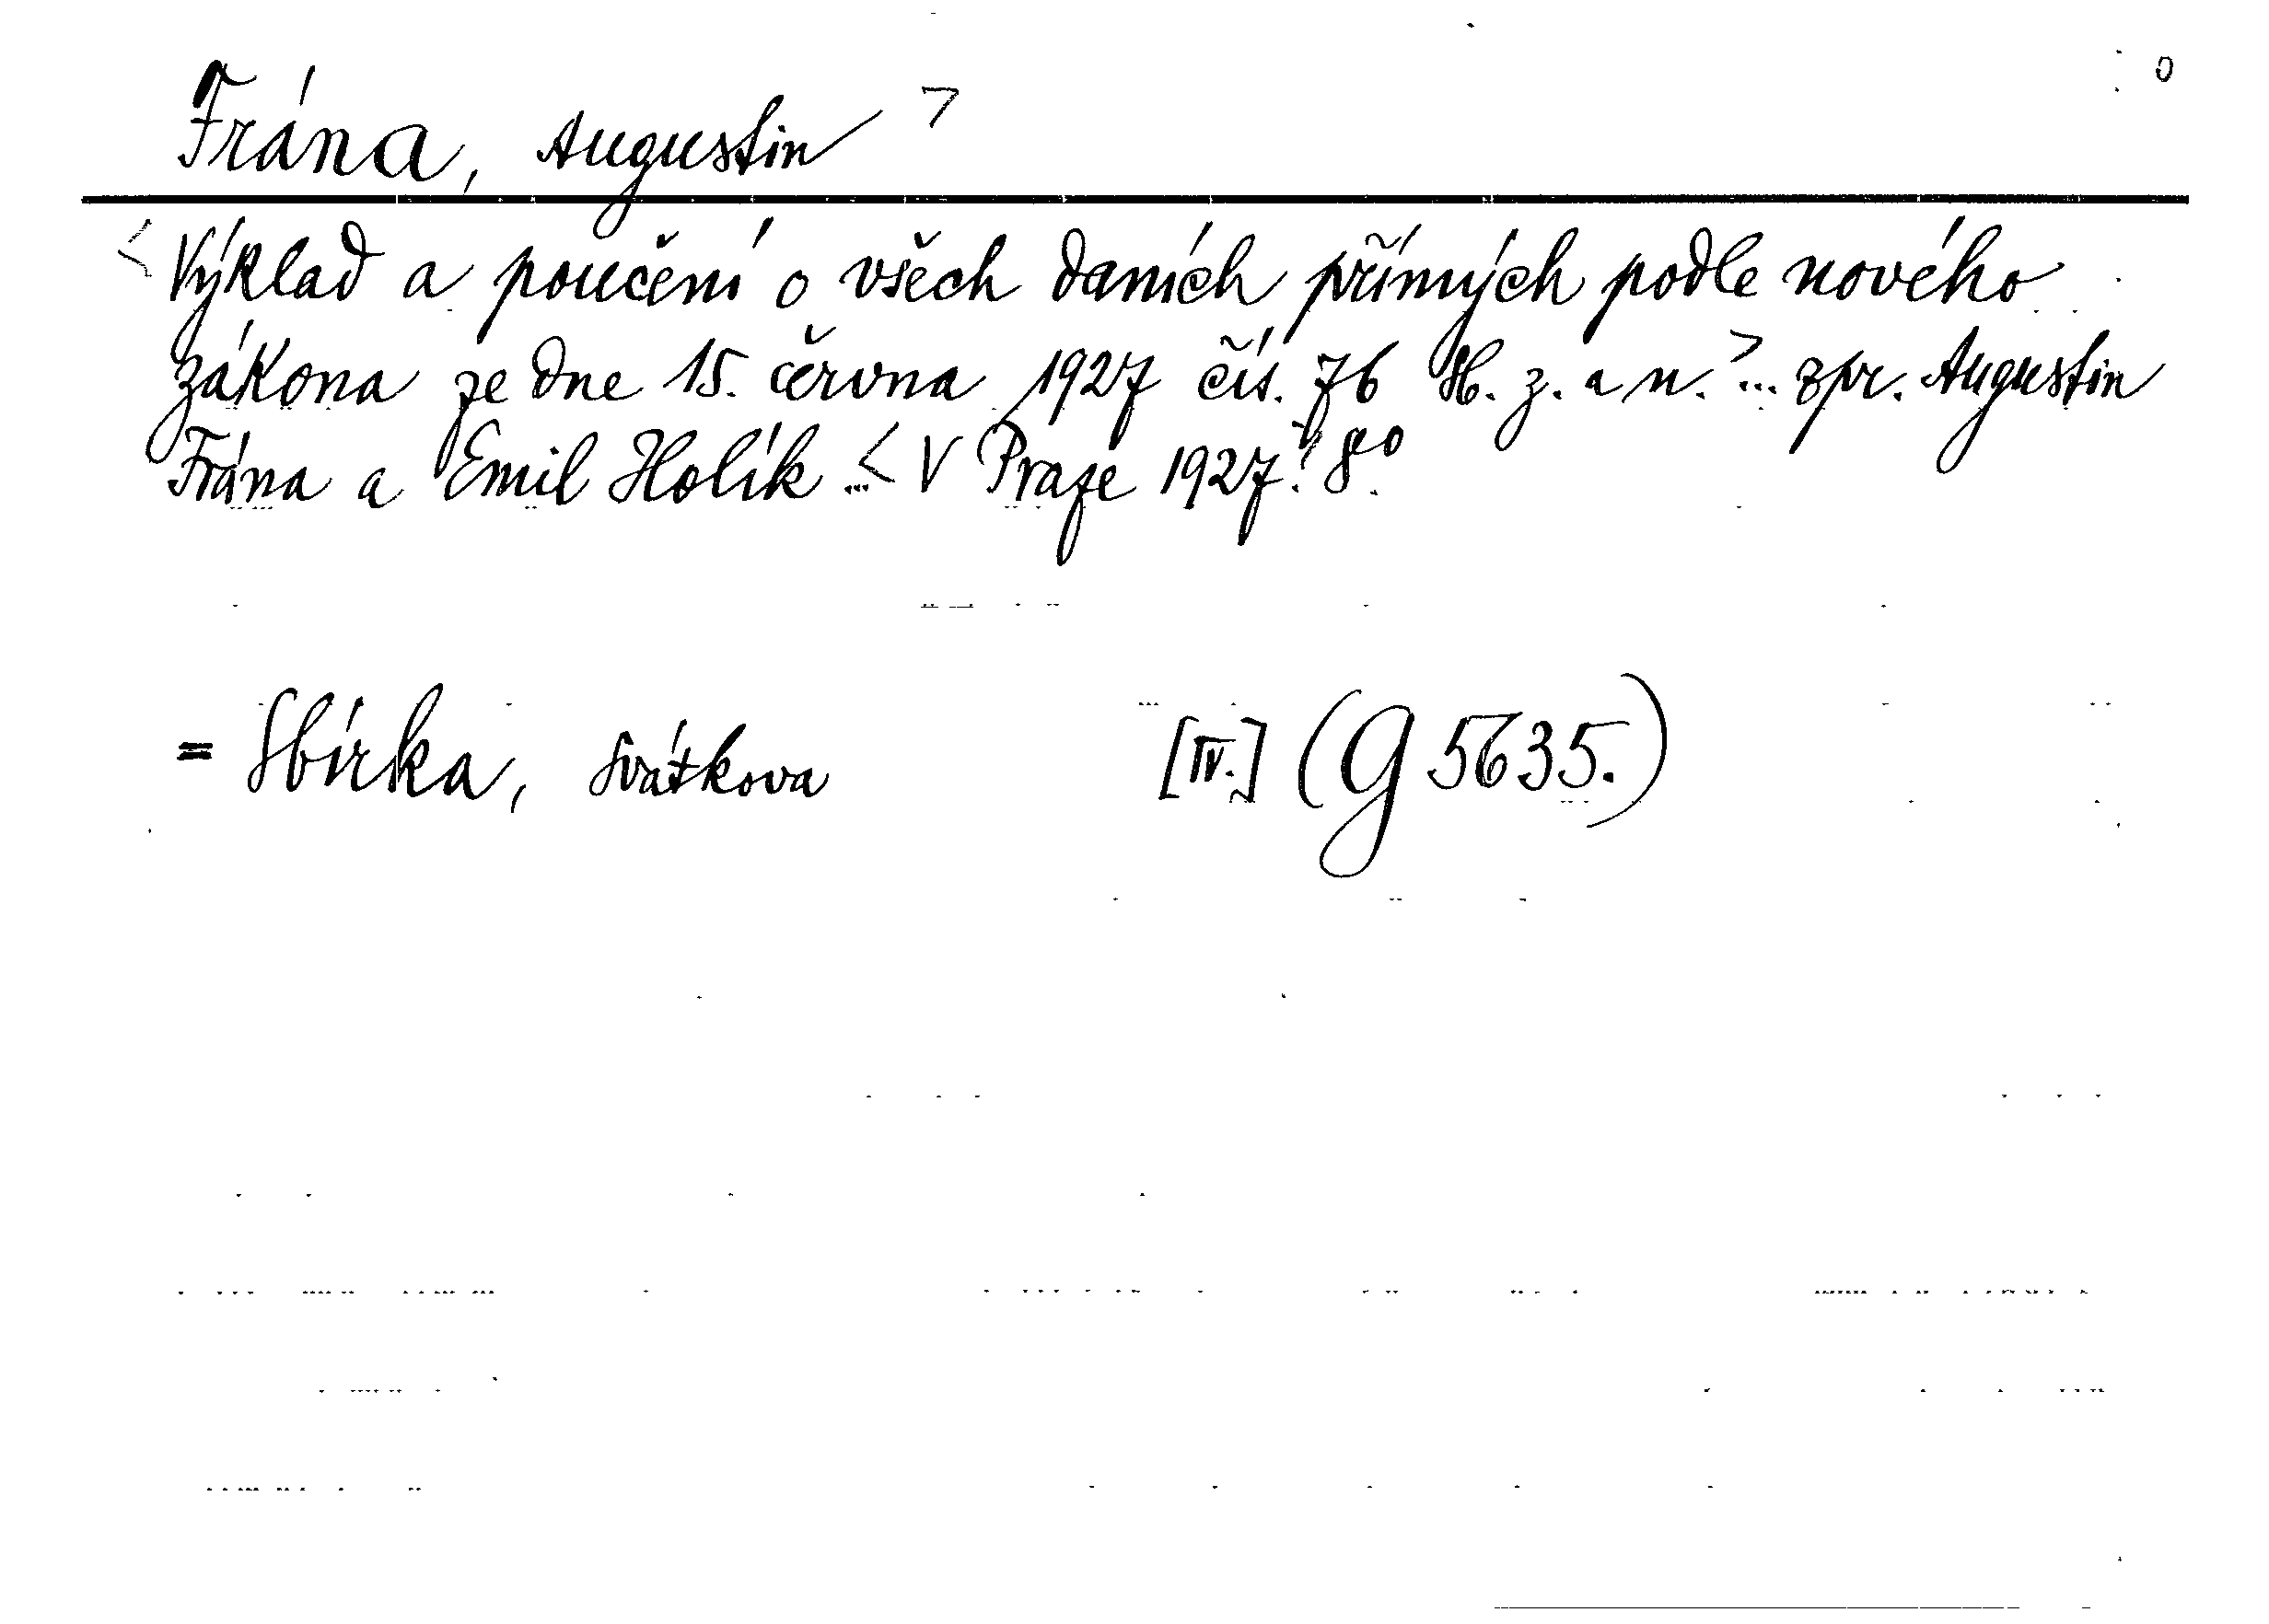 0
Frána, Augustin >
< Výklad a poučení o všech daních přímých podle nového
zákona ze dne 15. června 1927 čís. 76 Sb. z. a n. > ... zpr. Augustin
Frána a Emil Holík ... < V Praze 1927. > 8°.
= Sbírka, Svátkova [IV.] (G 5635.)